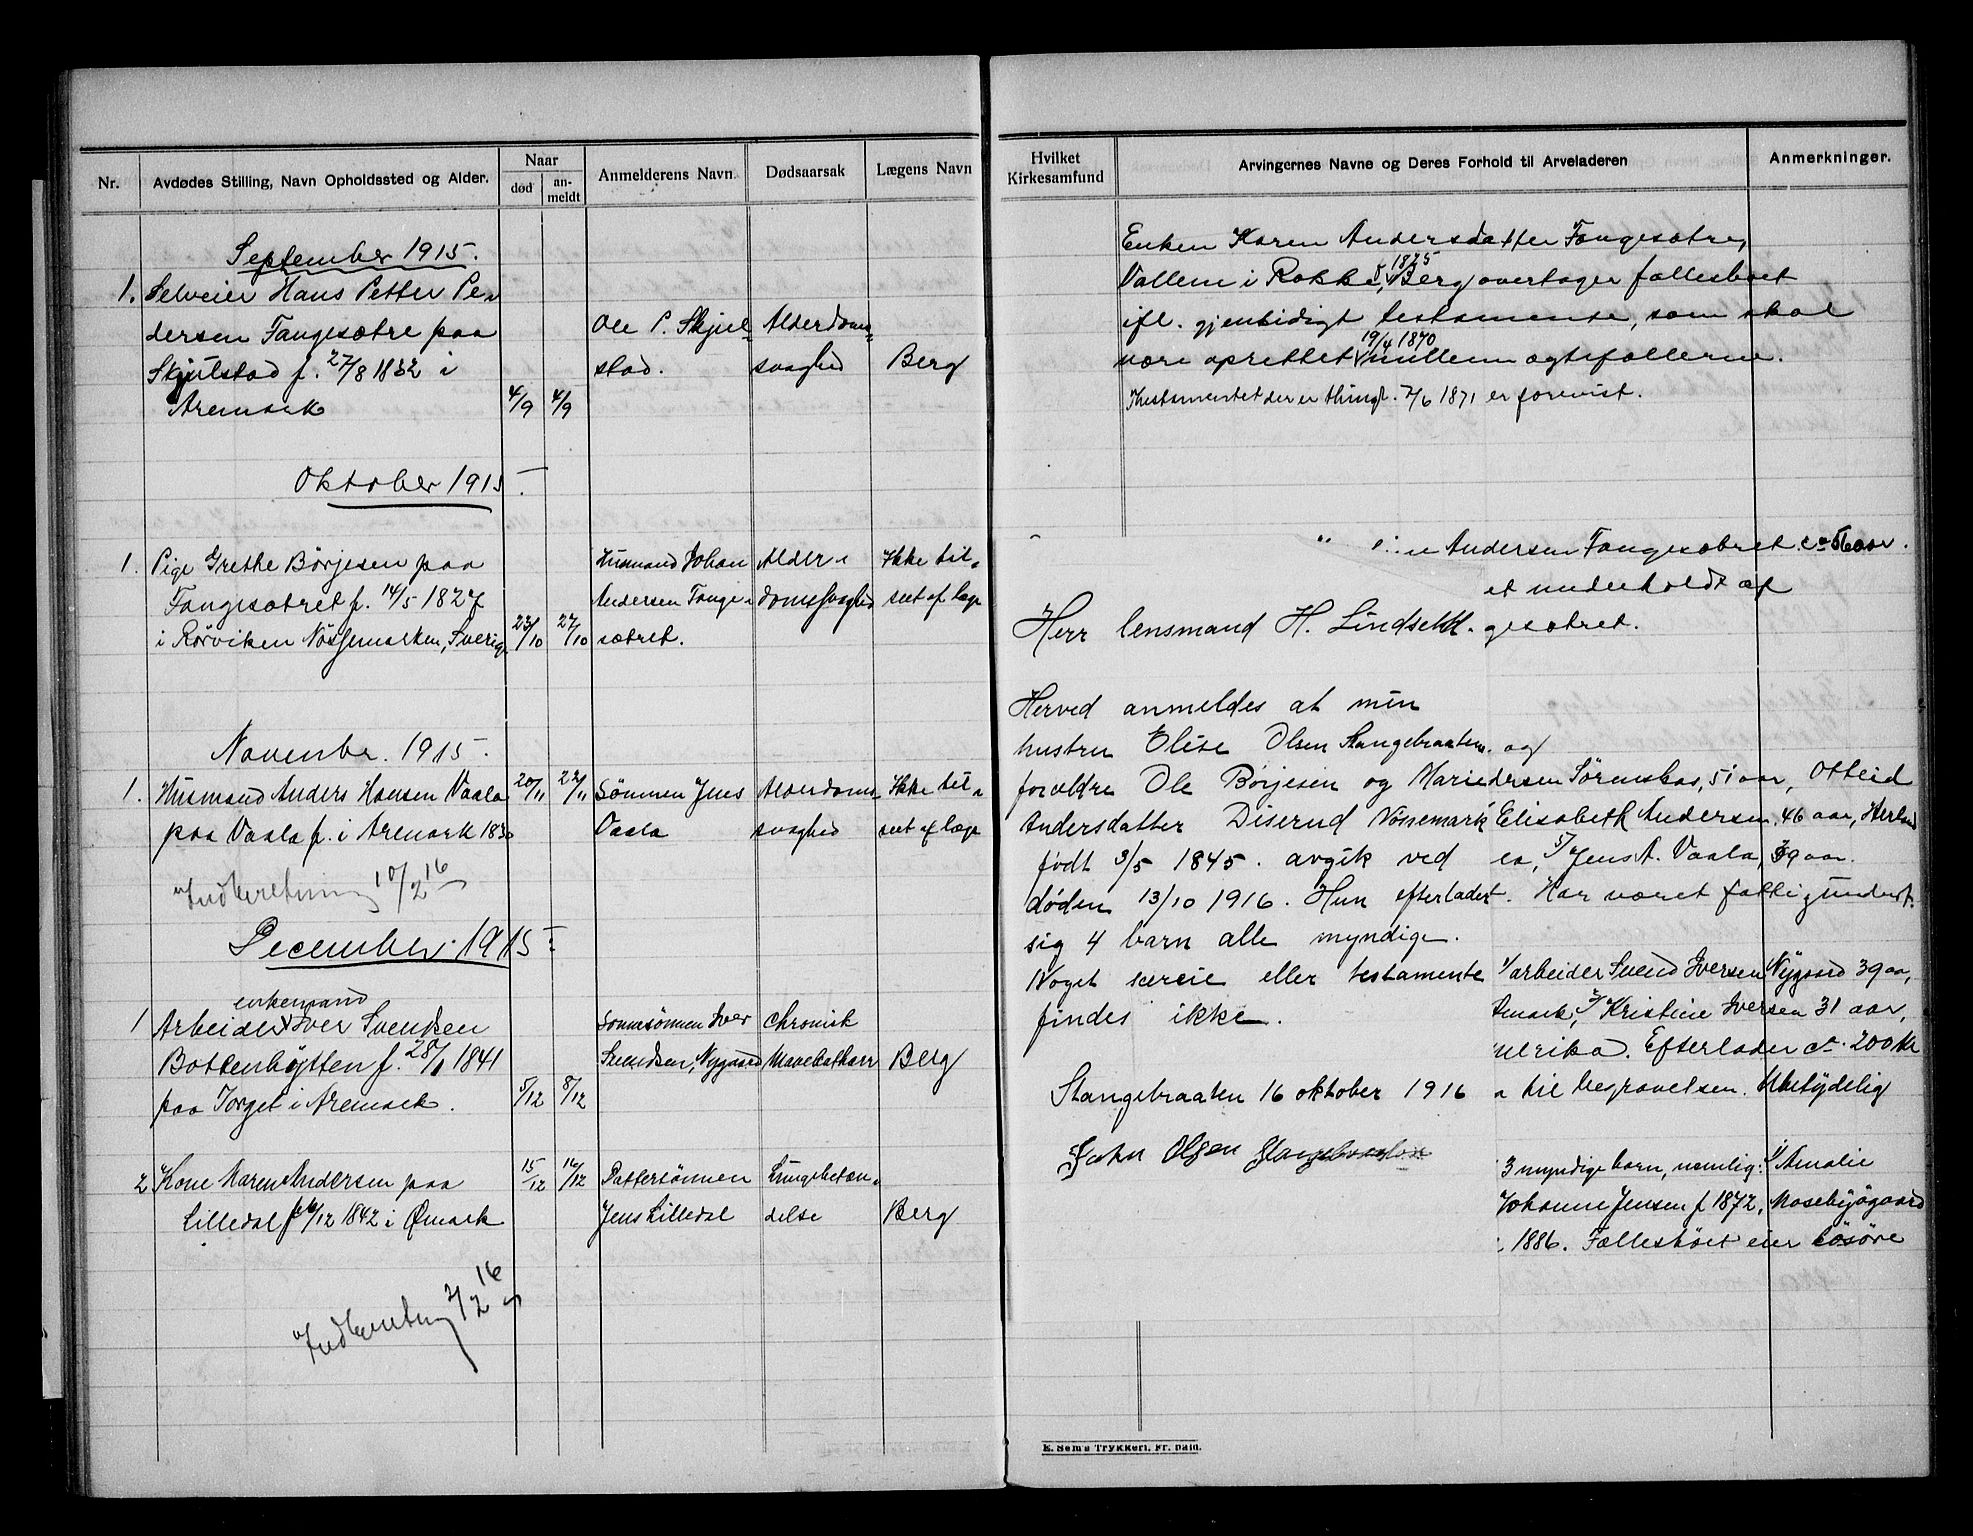 Nr.
Avdødes Stilling, Navn Opholdssted og Alder.
Naar
død
an-
meldt
Anmelderens Navn
Dødsaarsak
Lægens Navn
September 1915.
1. Selveier Hans Petter Pe-
dersen Fangesætre paa
Skjulstad f. 27/8 1832 i
Aremark
4/9 4/9
Ole P. Skjul-
stad.
Alderdoms-
svaghed
Berg
Oktober 1915.
1. Pige Grethe Børjesen paa
Fangesætret f. 14/5 1827
i Rørviken Nössemarken, Sverig
23/10 27/10
Husmand Johan
Andersen Fange-
sætret.
Alder-
domssvaghed
Ikke til-
seet af læge
November 1915.
1. Husmand Anders Hansen Vaala
paa Vaala f. i Aremark 1830
20/11 22/11
Sønnen Jens
Vaala
Alderdoms-
svaghed
Ikke til-
seet af læge
Indberetning 10/2 16
December 1915.
enkemand
1 Arbeider Iver Svendsen
Bottenhytten f. 28/1 1841
paa Torget i Aremark.
5/12 8/12
Sønnesønnen Iver
Svendsen, Nygaard
Chronisk
Mavekatharr
Berg
2 Kone Maren Andersen paa
Lilledal f. /12 1842 i Ømark
15/12 /12
Dattersønnen
Jens Lilledal
Lungebetæn-
delse
Berg
Indberetning 2/2 16
Hvilket
Kirkesamfund
Arvingernes Navne og Deres Forhold til Arveladeren
Anmerkninger.
Enken Karen Andersdatter Fangesætre,
f. 1825
Vallem i Rokke, Berg overtager fællesboet
ifl. gjensidigt testamente, som skal
19/4 1870
være oprettet mellem ægtefællerne.
Testamentet der er thingl. 7/6 1871 er forevist.
Andersen Fangesætret ca 60 aar.
et underholdt af
gesætret.
Herr lensmand H. Lindseth.
Herved anmeldes at min
hustru Elise Olsen Stangebraaten og
forældre Ole Børjesen og Marie
Andersdatter Diserud Nössemark
født 3/5 1845. avgik ved
døden 13/10 1916. Hun efterlader
sig 4 barn alle myndige.
Noget særeie eller testamente
findes ikke.
Stangebraaten 16 oktober 1916
John Olsen Stangebraaten
dersen Sørensbas, 51 aar, Otteid
Elisabeth Andersen, 46 aar, Herland
Jens A. Vaala, 39 aar.
Har været fattigunderst.
1/ arbeider Svend Iversen Nygaard 39 aar,
2/ Kristine Iversen 31 aar,
merika. Efterlader ca 200 kr
til begravelsen. Ubetydelig
3 myndige barn, nemlig: 1/ Amalie
Johanne Jensen f 1872, Mosebygaard
1886. Fællesboet eier løsøre
E. Sem's Trykkeri, Fr. hald.